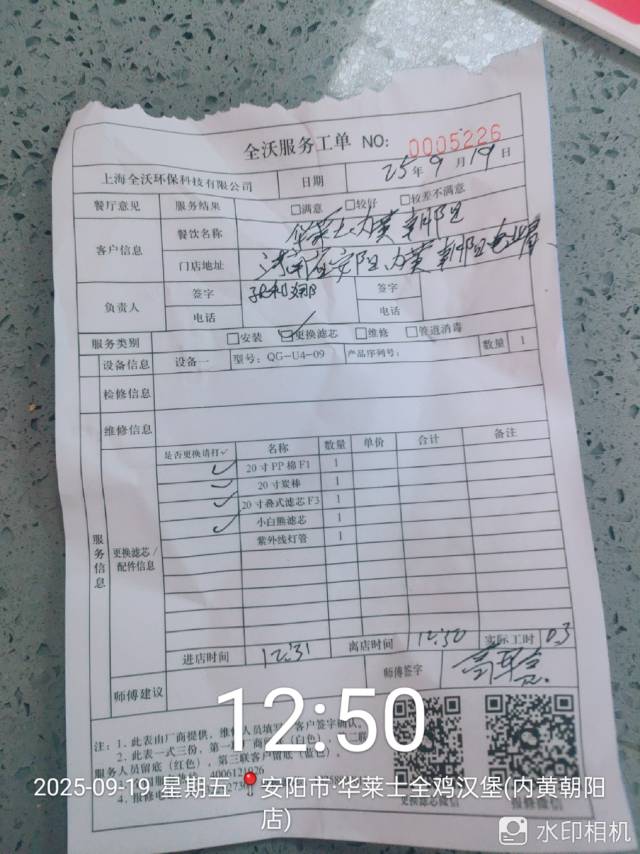 全沃服务工单 NO: 0005226
上海全沃环保科技有限公司 日期 25年9月19日
餐厅意见 服务结果 □满意 □较好 □较差不满意
客户信息 餐饮名称 华莱士内黄朝阳店
门店地址 河南省安阳内黄朝阳
负责人 签字 签字
电话 电话
服务类别 □安装 ☑更换滤芯 □维修 □管道消毒
设备信息 设备一 型号: QG-U4-09 产品序列号: 数量 1
检修信息
维修信息
服务信息 更换滤芯/配件信息
是否更换请打✓ 名称 数量 单价 合计 备注
✓ 20寸PP棉F1 1
✓ 20寸炭棒 1
✓ 20寸叠式滤芯F3 1
✓ 小白熊滤芯 1
紫外线灯管 1
进店时间 12:31 离店时间 12:50 实际工时 0.3
师傅建议 师傅签字
注: 1. 此表由厂商提供, 维修人员填写, 客户签字确认。
2. 此表一式三份, 第一 (白色), 二联
服务人员留底 (红色), 第三联客户留底 (蓝色)。
4006121076
4. 报修电
更换滤芯微信 报修微信
12:50
2025-09-19 星期五 📍安阳市·华莱士全鸡汉堡(内黄朝阳
店)
水印相机